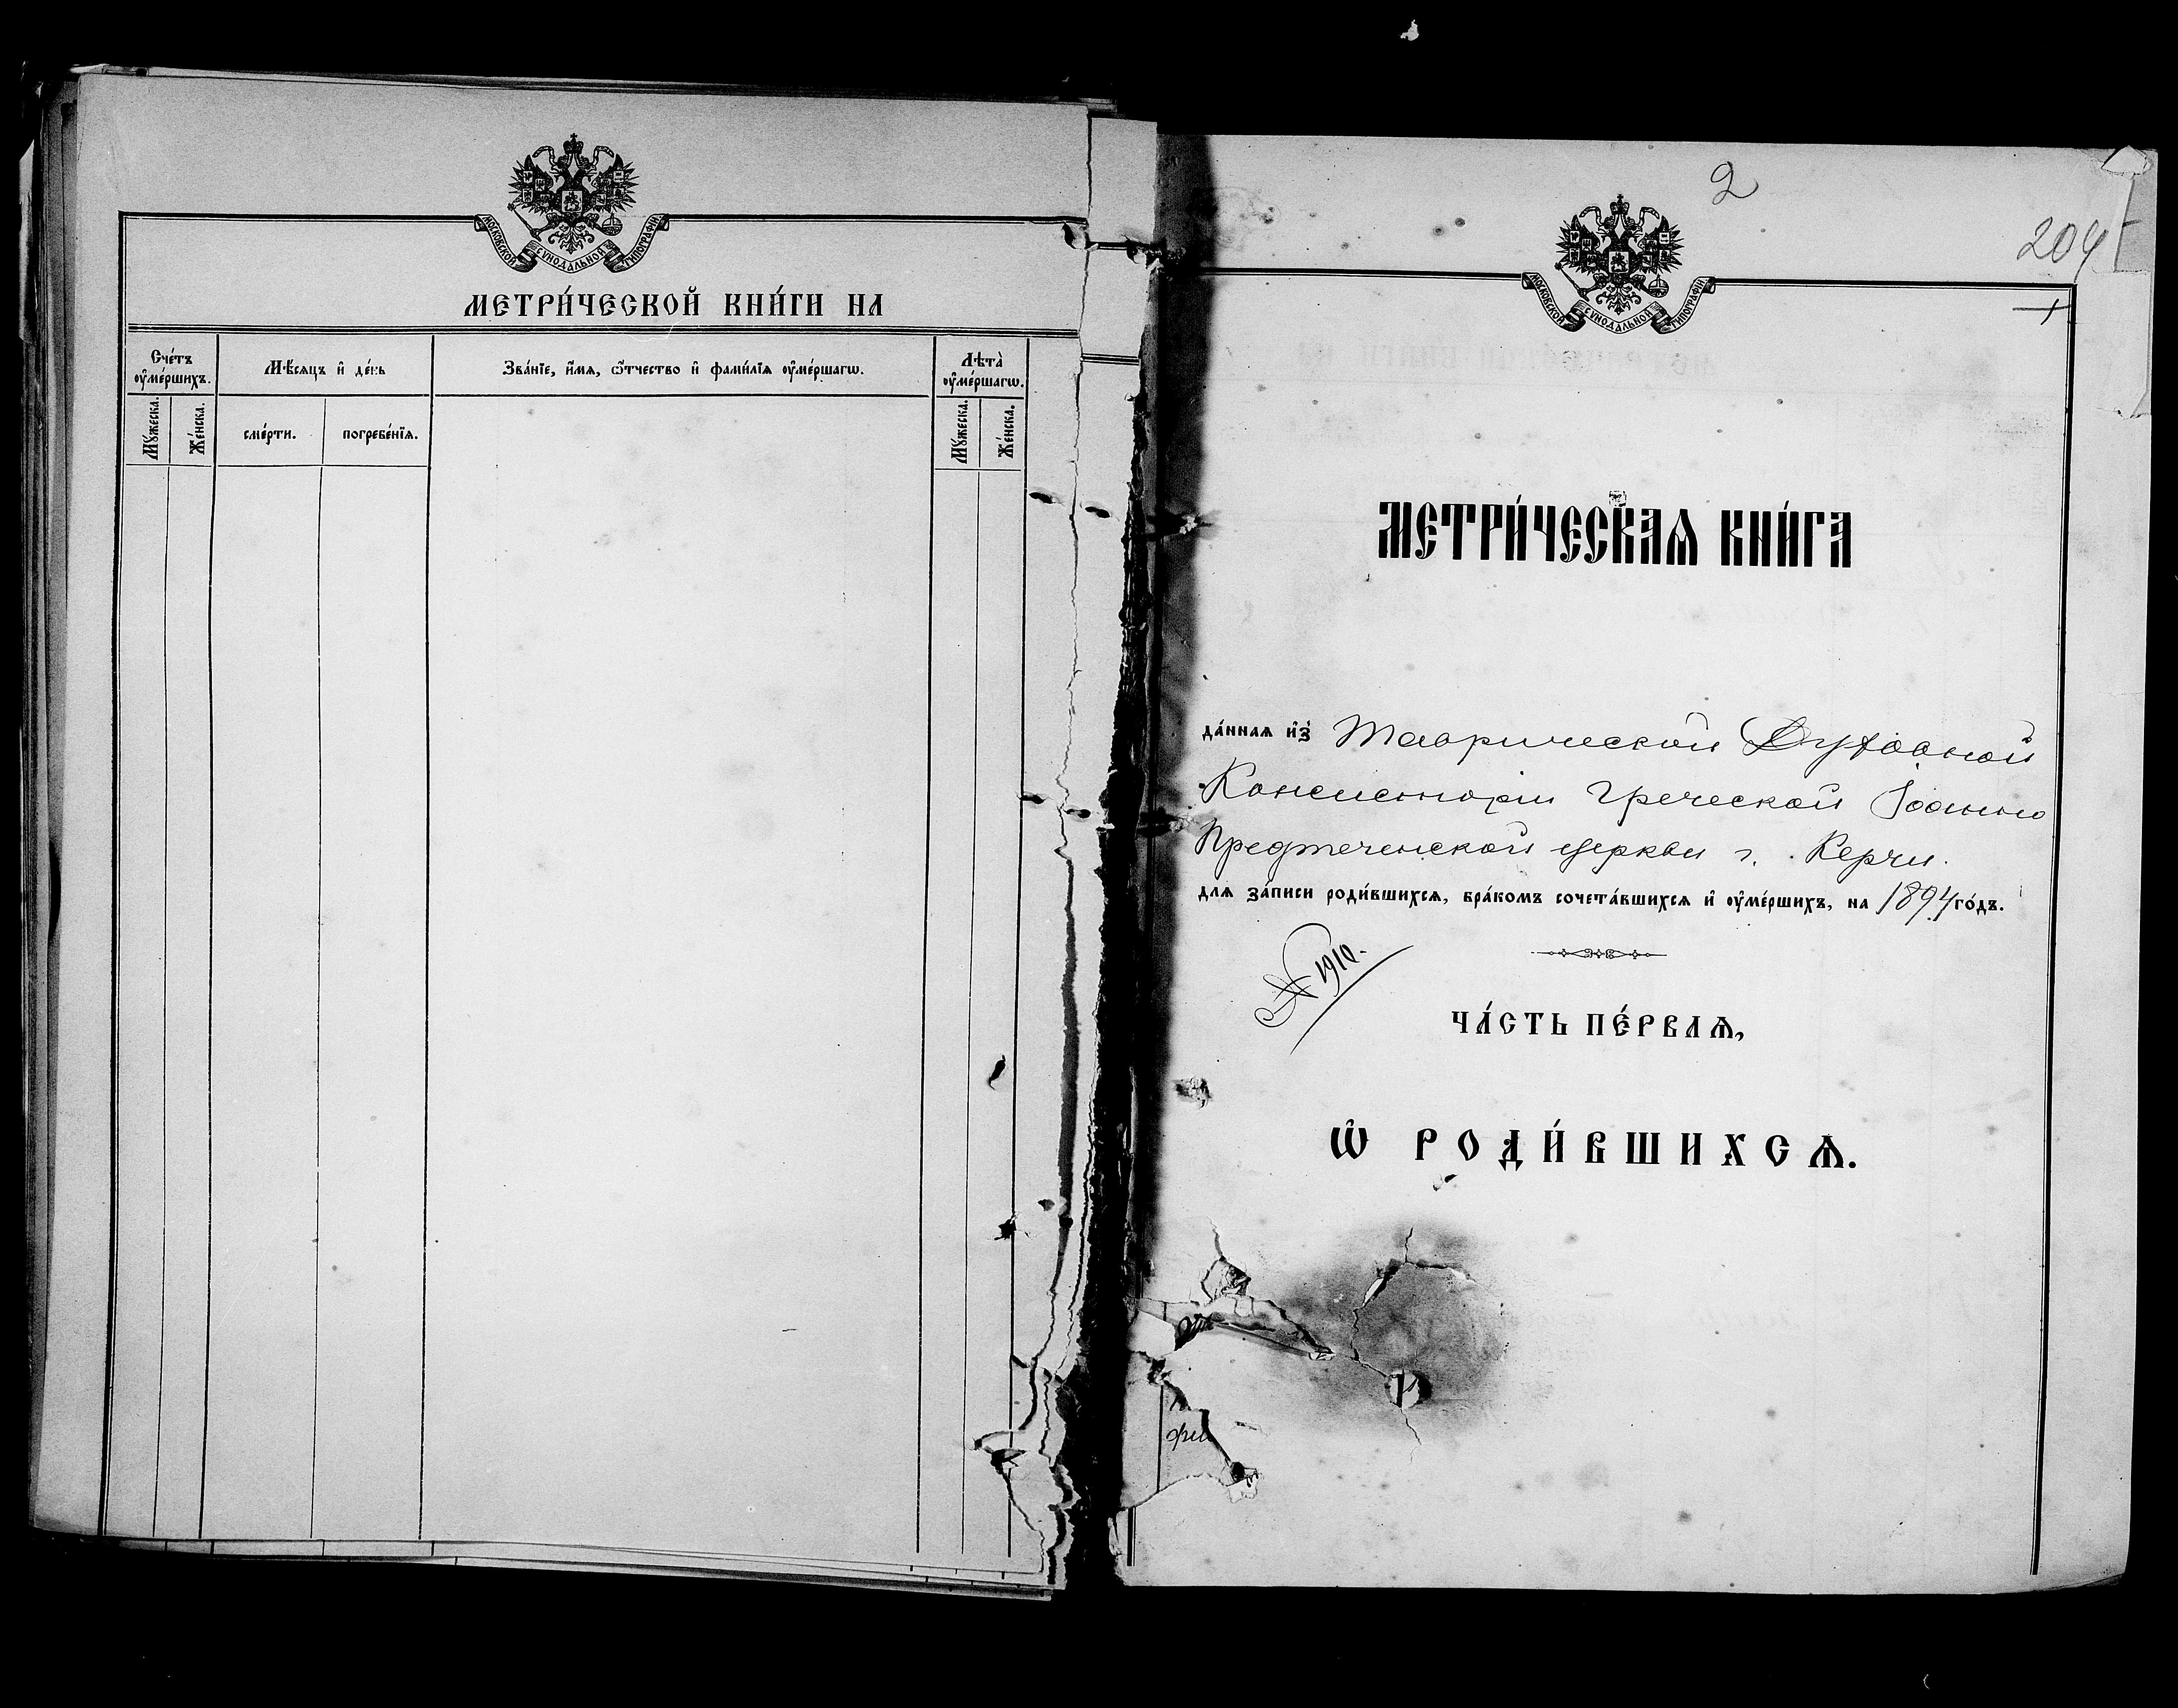 МОСКОВСКОЙ СѴНОДАЛЬНОЙ ТИПОГРАФІИ
МЕТРИ́ЧЕСКОЙ КНИ́ГИ НА
Сче́тъ ᲂу҆ме́ршихъ.
Мѣ́сяцъ и҆ де́нь
Зва́нїе, и҆́мѧ, ѻ҆́тчество и҆ фами́лїѧ ᲂу҆ме́ршагѡ.
Лѣта̀ ᲂу҆ме́ршагѡ.
Мꙋ́жеска.
Же́нска.
сме́рти.
погребе́нїѧ.
Мꙋ́жеска.
Же́нска.
2
204
МОСКОВСКОЙ СѴНОДАЛЬНОЙ ТИПОГРАФІИ
МЕТРИ́ЧЕСКАѦ КНИ́ГА
да́ннаѧ и҆з̾ Таврической Духовной
Консисторіи Греческой Іоанно
Предтеченской церкви г. Керчи.
длѧ за́писи роди́вшихсѧ, бра́комъ сочета́вшихсѧ и҆ ᲂу҆ме́ршихъ, на 1894 го́дъ.
№ 1910.
ЧА́СТЬ ПЕ́РВАѦ,
Ѡ҆ РОДИ́ВШИХСѦ.